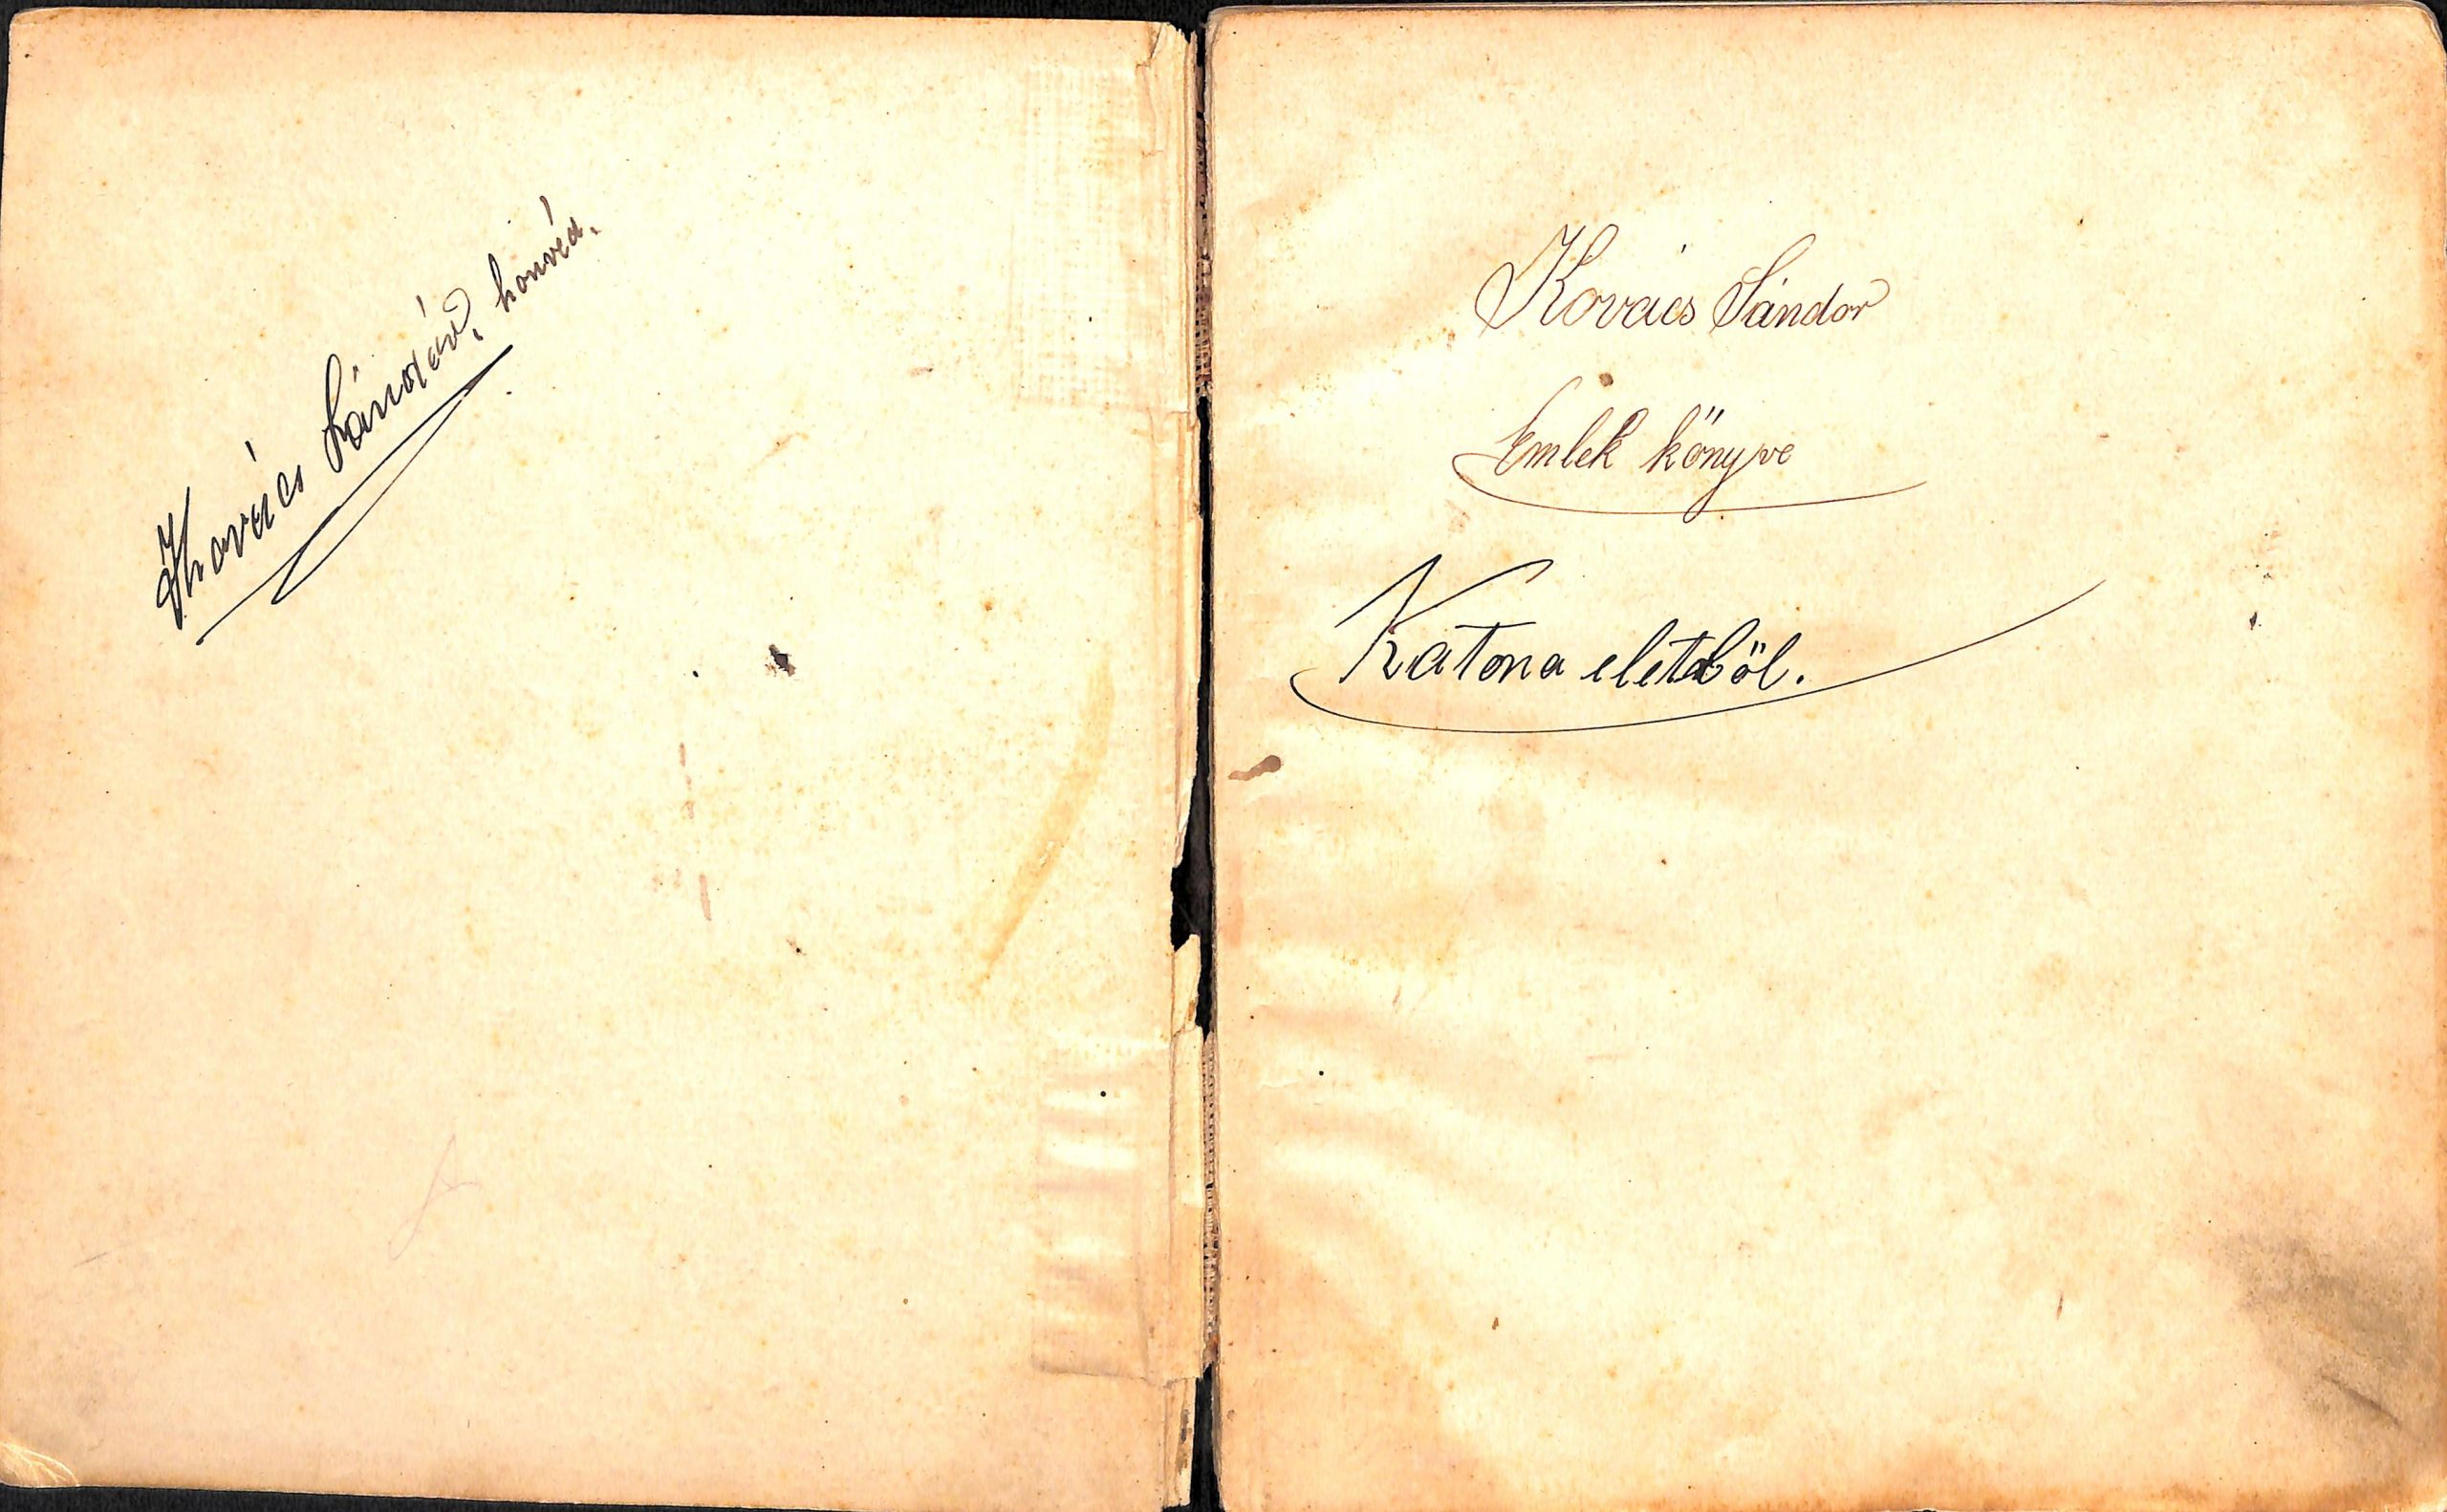 Kovács Sándor, honvéd.
Kovács Sándor
Emlek könyve
Katona eletböl.